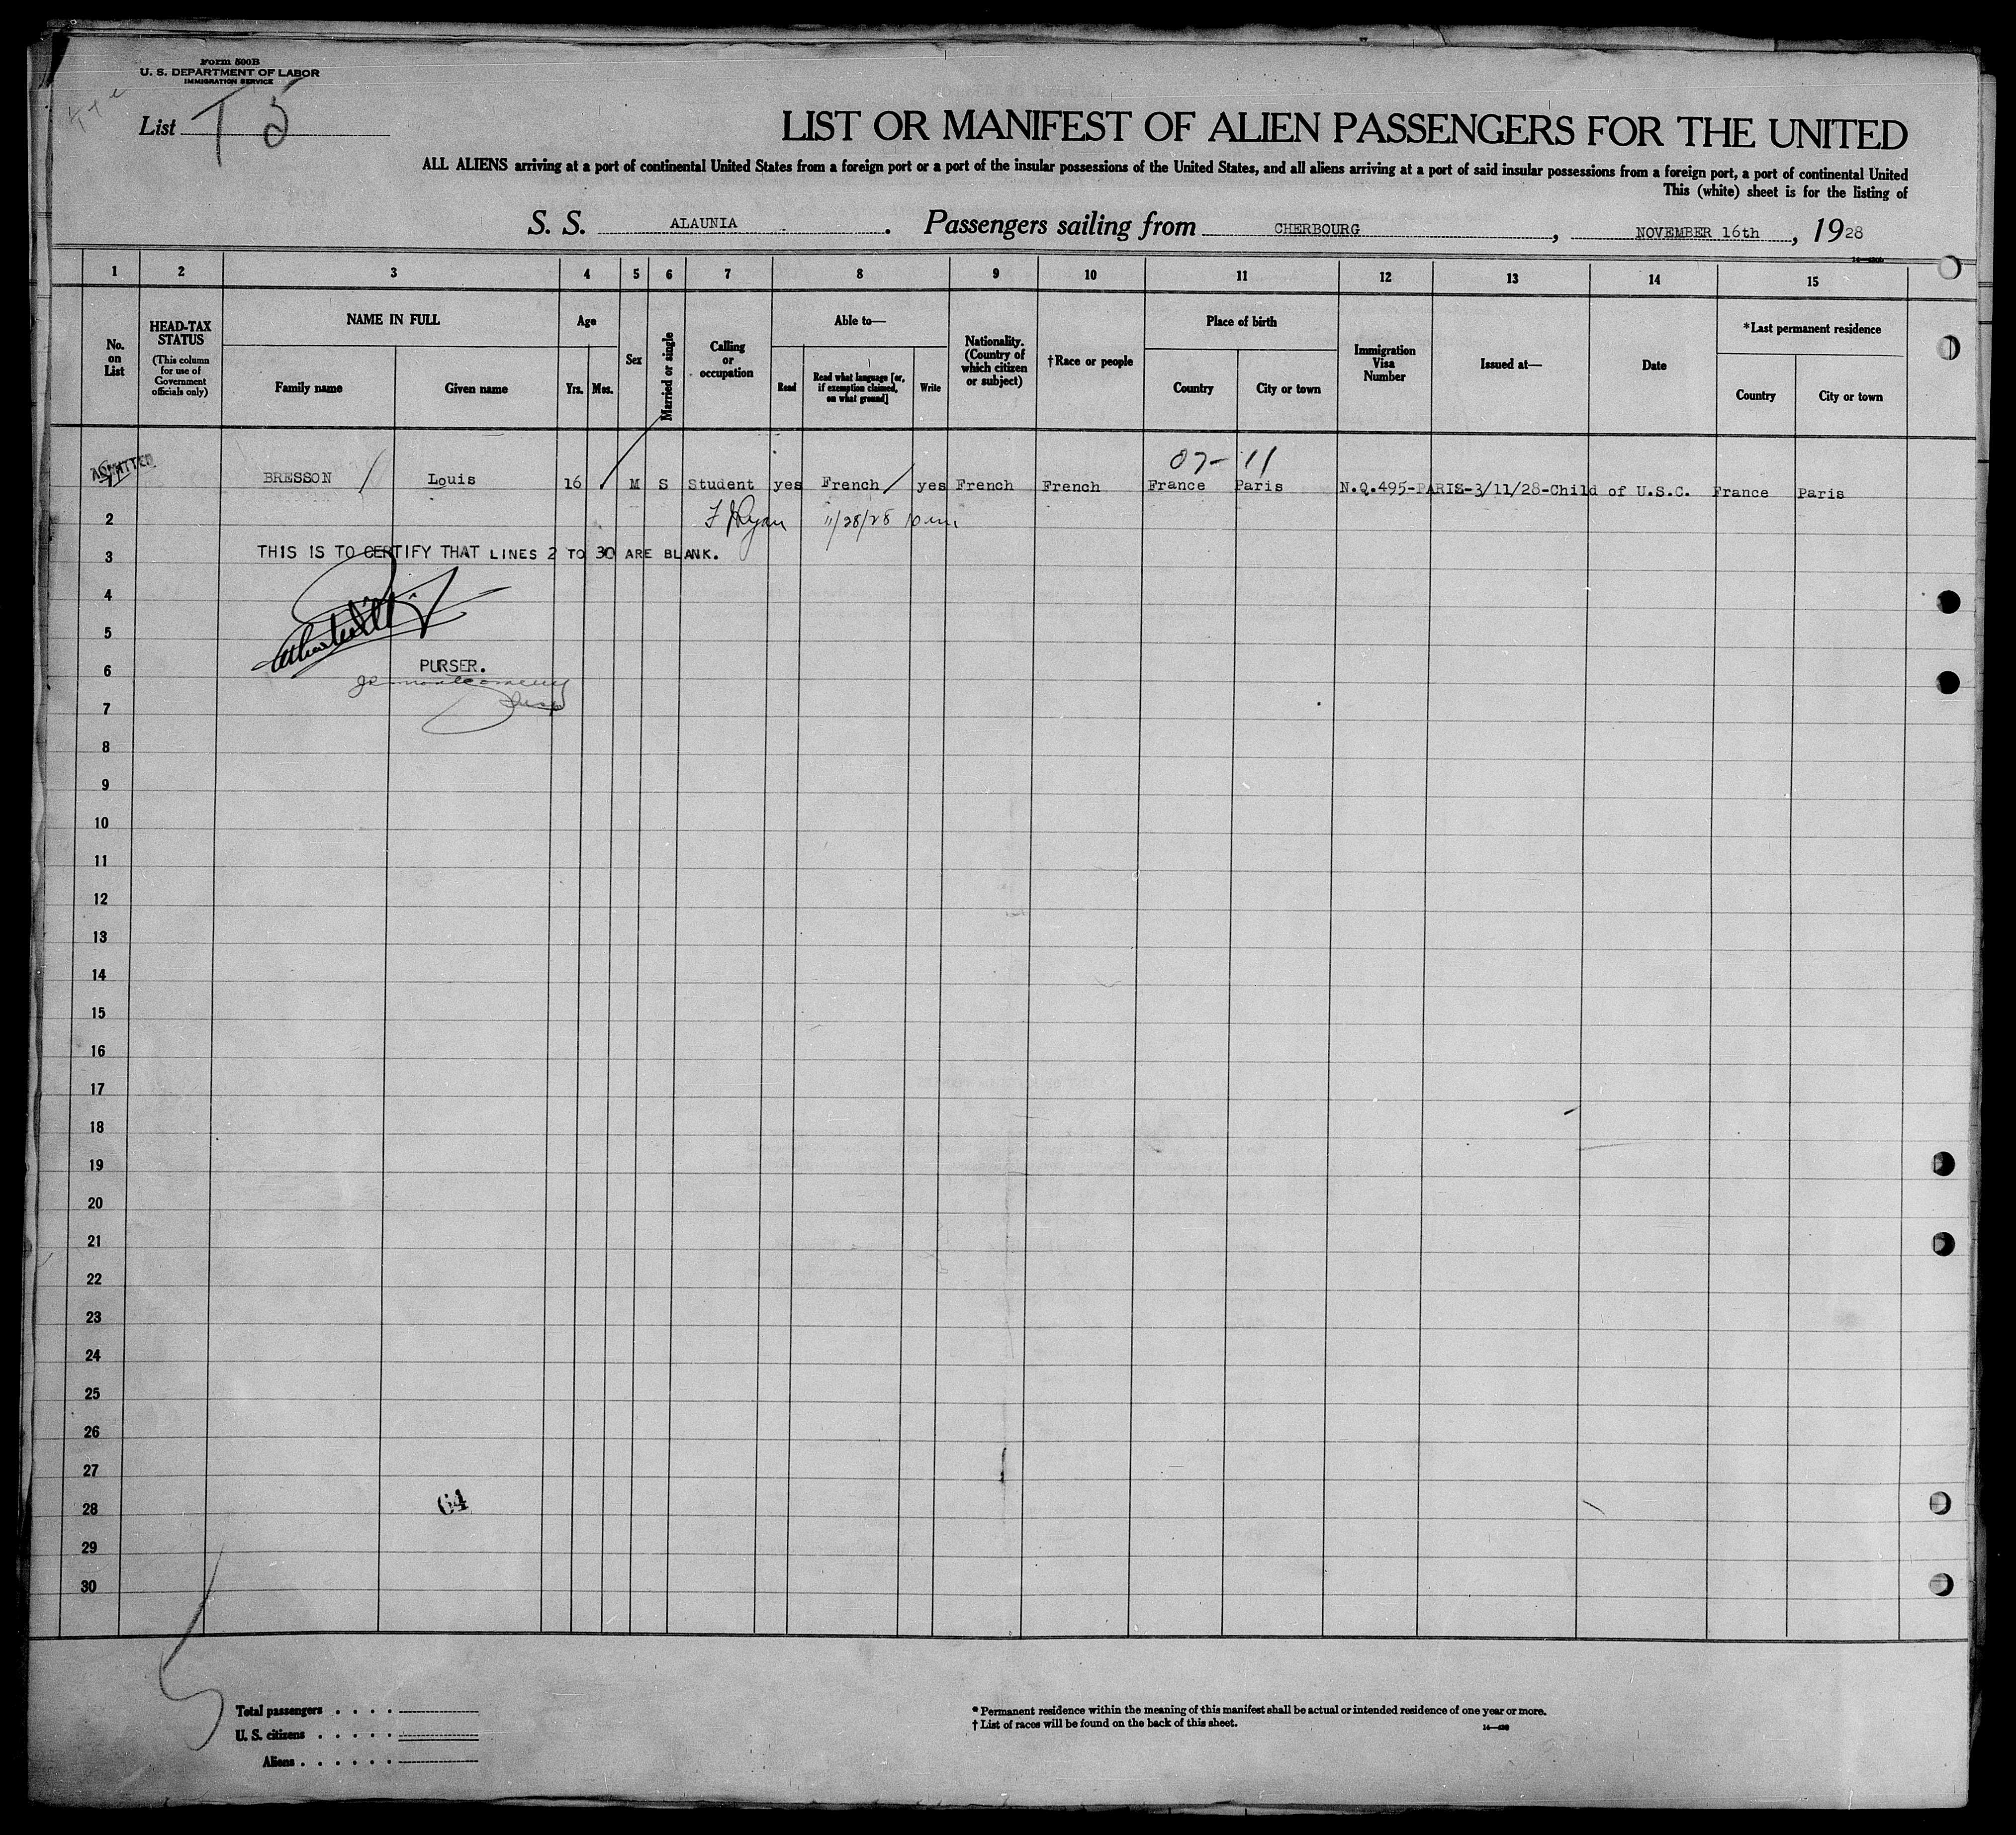 Form 500B
U. S. DEPARTMENT OF LABOR
IMMIGRATION SERVICE
List T 5
LIST OR MANIFEST OF ALIEN PASSENGERS FOR THE UNITED
ALL ALIENS arriving at a port of continental United States from a foreign port or a port of the insular possessions of the United States, and all aliens arriving at a port of said insular possessions from a foreign port, a port of continental United
This (white) sheet is for the listing of
S. S. ALAUNIA. Passengers sailing from CHERBOURG, NOVEMBER 16th, 1928
1 2 3 4 5 6 7 8 9 10 11 12 13 14 15
No. on List
HEAD-TAX STATUS
(This column for use of Government officials only)
NAME IN FULL
Family name Given name
Age
Yrs. Mos.
Sex
Married or single
Calling or occupation
Able to—
Read
Read what language [or, if exemption claimed, on what ground]
Write
Nationality. (Country of which citizen or subject)
†Race or people
Place of birth
Country City or town
Immigration Visa Number
Issued at—
Date
*Last permanent residence
Country City or town
07- 11
ADMITTED BRESSON / Louis 16 M S Student yes French / yes French French France Paris N.Q.495-PARIS-3/11/28-Child of U.S.C. France Paris
2 11/28/28
3 THIS IS TO CERTIFY THAT LINES 2 TO 30 ARE BLANK.
4
5
6 PURSER.
7
8
9
10
11
12
13
14
15
16
17
18
19
20
21
22
23
24
25
26
27
28 64
29
30
Total passengers . . . .
U. S. citizens . . . . .
Aliens . . . . . .
* Permanent residence within the meaning of this manifest shall be actual or intended residence of one year or more.
† List of races will be found on the back of this sheet.